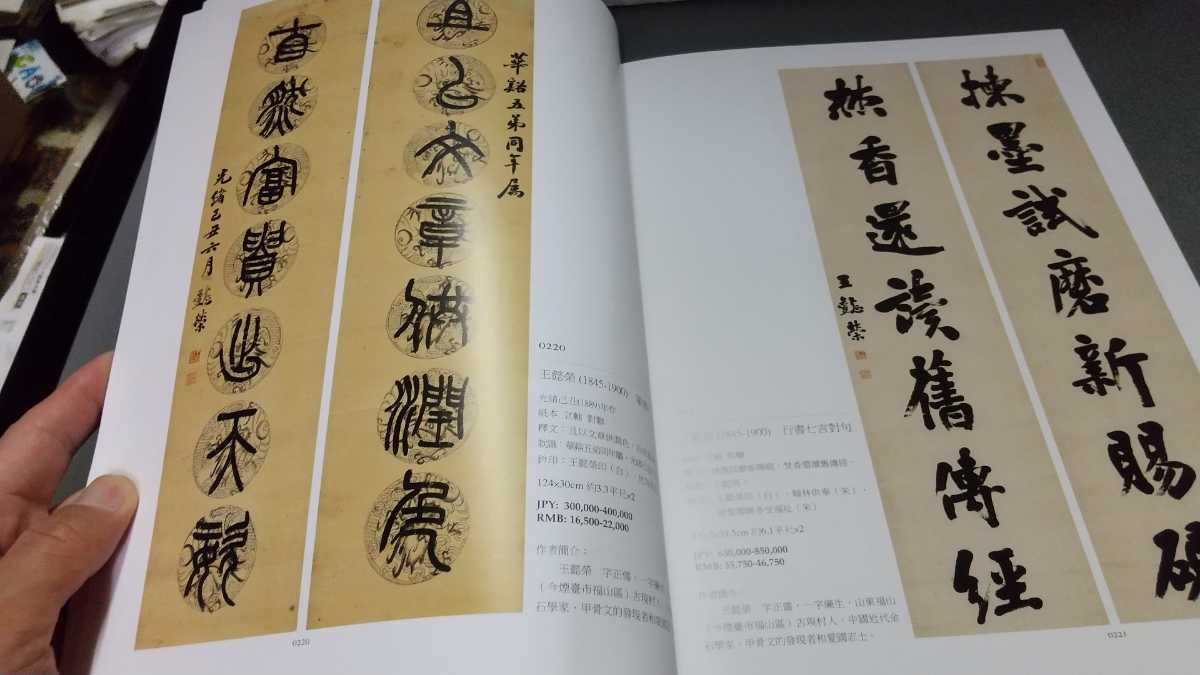 且以文章供潤色
華谿五弟同年属
直將富貴出天然
光緒己丑六月
懿榮
0220
王懿榮 (1845-1900)
光緒己丑(1889)年作
紙本 立軸 對聯
釋文：且以文章供潤色，
款識：華谿五弟同年屬，
鈐印：王懿榮印（白）、
124x30cm 約3.3平尺x2
JPY: 300,000-400,000
RMB: 16,500-22,000
作者簡介：
王懿榮 字正儒，一字廉
（今煙臺市福山區）古現村人
石學家，甲骨文的發現者和愛
0220
揀墨試磨新賜硯
焚香還讀舊傳經
王懿榮
(1845-1900) 行書七言對句
焚香還讀舊傳經。
王懿榮印（白）、翰林供奉（朱）、
約6.1平尺x2
JPY: 650,000-850,000
RMB: 35,750-46,750
作者簡介：
王懿榮 字正儒，一字廉生，山東福山
（今煙臺市福山區）古現村人，中國近代金
石學家，甲骨文的發現者和愛國志士。
0221